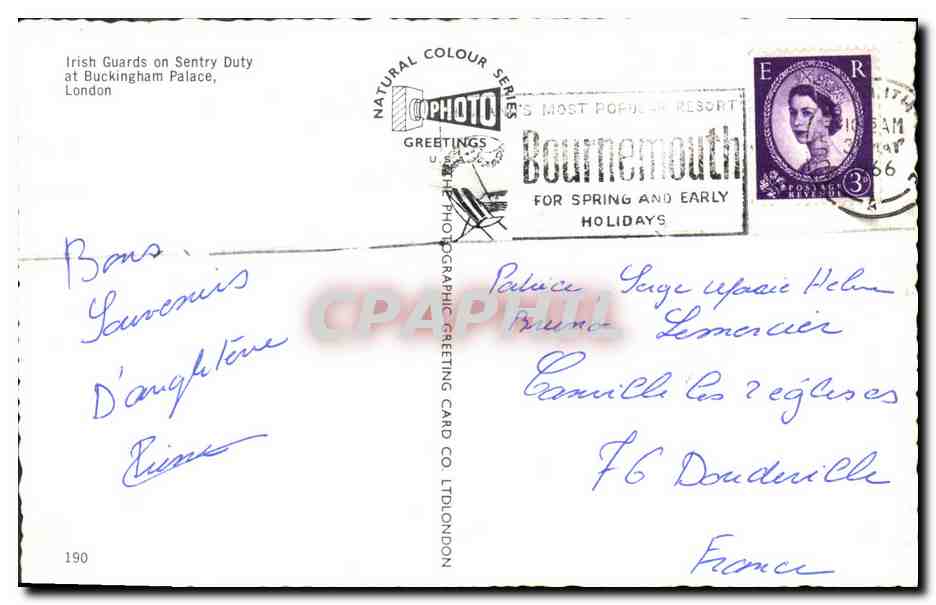 Irish Guards on Sentry Duty
at Buckingham Palace,
London
NATURAL COLOUR SERIES
PHOTO
GREETINGS
U.S.A.
'S MOST POPULAR RESORT
Bournemouth
FOR SPRING AND EARLY
HOLIDAYS
E R
POSTAGE
REVENUE
3D
AM
66
THE PHOTOGRAPHIC GREETING CARD CO. LTD LONDON
Bons
Souvenirs
D'angletérre
Pierre
CPAPHIL
Patrice Serge Marie Helene
Bruno Lemercier
Canville les 2 églises
76 Doudeville
France
190